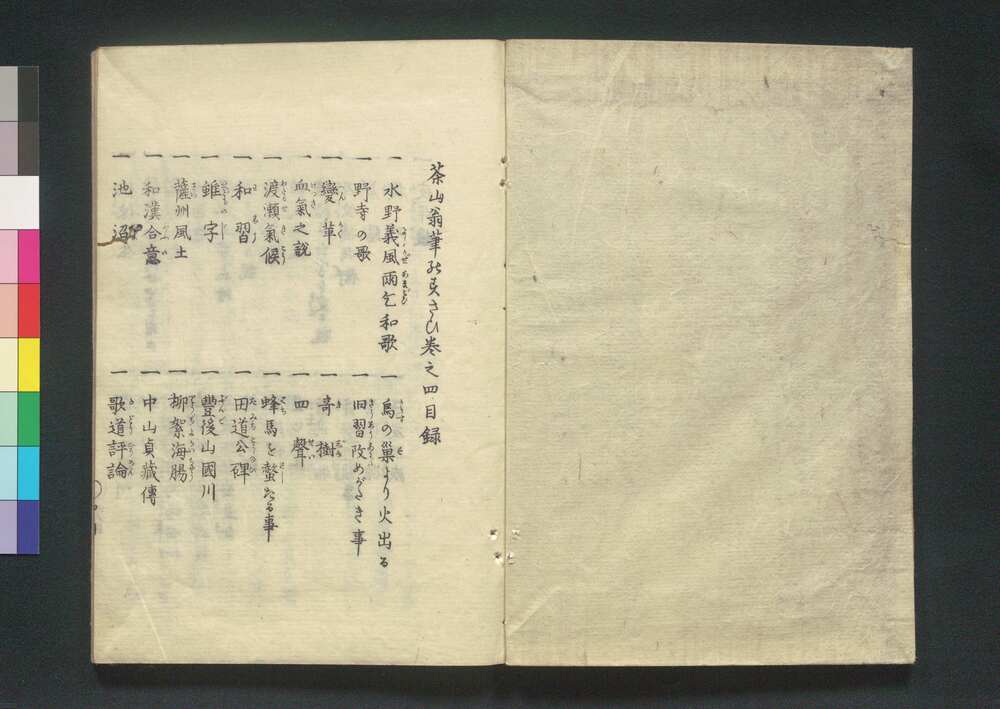 茶山翁筆のすさひ巻之四目録
一 水野義風雨乞和歌
一 烏の巣より火出る
一 野寺の歌
一 旧習改めがたき事
一 變革
一 奇樹
一 血氣之説
一 四聲
一 渡瀬氣候
一 蜂馬を螫たる事
一 和習
一 田道公碑
一 雖字
一 豐後山國川
一 薩州風土
一 柳絮海腸
一 和漢合意
一 中山貞蔵傳
一 池
一 歌道評論